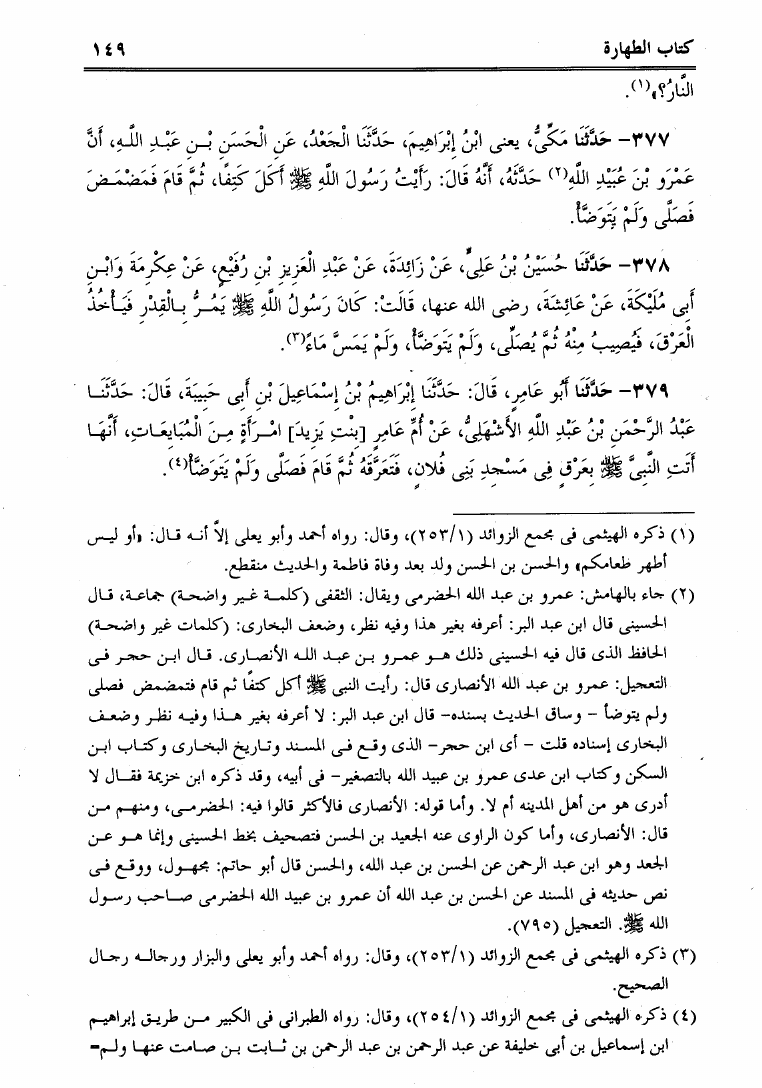 كتاب الطهارة ١٤٩
النَّارُ؟»(١).
٣٧٧- حَدَّثَنَا مَكِّىُّ، يعنى ابْنُ إِبْرَاهِيمَ، حَدَّثَنَا الْجَعْدُ، عَنِ الْحَسَنِ بْنِ عَبْدِ اللَّهِ، أَنَّ
عَمْرَو بْنَ عُبَيْدِ اللَّهِ(٢) حَدَّثَهُ، أَنَّهُ قَالَ: رَأَيْتُ رَسُولَ اللَّهِ ﷺ أَكَلَ كَتِفًا، ثُمَّ قَامَ فَمَضْمَضَ
فَصَلَّى وَلَمْ يَتَوَضَّأْ.
٣٧٨- حَدَّثَنَا حُسَيْنُ بْنُ عَلِىٍّ، عَنْ زَائِدَةَ، عَنْ عَبْدِ الْعَزِيزِ بْنِ رُفَيْعٍ، عَنْ عِكْرِمَةَ وَابْنِ
أَبِى مُلَيْكَةَ، عَنْ عَائِشَةَ، رضى الله عنها، قَالَتْ: كَانَ رَسُولُ اللَّهِ ﷺ يَمُرُّ بِالْقِدْرِ فَيَأْخُذُ
الْعَرْقَ، فَيُصِيبُ مِنْهُ ثُمَّ يُصَلِّى، وَلَمْ يَتَوَضَّأْ، وَلَمْ يَمَسَّ مَاءً(٣).
٣٧٩- حَدَّثَنَا أَبُو عَامِرٍ، قَالَ: حَدَّثَنَا إِبْرَاهِيمُ بْنُ إِسْمَاعِيلَ بْنِ أَبِى حَبِيبَةَ، قَالَ: حَدَّثَنَا
عَبْدُ الرَّحْمَنِ بْنُ عَبْدِ اللَّهِ الأَشْهَلِىُّ، عَنْ أُمِّ عَامِرٍ [بِنْتِ يَزِيدَ] امْرَأَةٍ مِنَ الْمُبَايِعَاتِ، أَنَّهَا
أَتَتِ النَّبِىَّ ﷺ بِعَرْقٍ فِى مَسْجِدِ بَنِى فُلانٍ، فَتَعَرَّقَهُ ثُمَّ قَامَ فَصَلَّى وَلَمْ يَتَوَضَّأْ(٤).
(١) ذكره الهيثمى فى مجمع الزوائد (٢٥٣/١)، وقال: رواه أحمد وأبو يعلى إلاَّ أنه قال: «أو ليس
أطهر طعامكم» والحسن بن الحسن ولد بعد وفاة فاطمة والحديث منقطع.
(٢) جاء بالهامش: عمرو بن عبد الله الحضرمى ويقال: الثقفى (كلمة غير واضحة) جماعة، قال
الحسينى قال ابن عبد البر: أعرفه بغير هذا وفيه نظر، وضعف البخارى: (كلمات غير واضحة)
الحافظ الذى قال فيه الحسينى ذلك هو عمرو بن عبد الله الأنصارى. قال ابن حجر فى
التعجيل: عمرو بن عبد الله الأنصارى قال: رأيت النبى ﷺ أكل كتفًا ثم قام فتمضمض فصلى
ولم يتوضأ - وساق الحديث بسنده- قال ابن عبد البر: لا أعرفه بغير هذا وفيه نظر وضعف
البخارى إسناده قلت - أى ابن حجر- الذى وقع فى المسند وتاريخ البخارى وكتاب ابن
السكن وكتاب ابن عدى عمرو بن عبيد الله بالتصغير- فى أبيه، وقد ذكره ابن خزيمة فقال لا
أدرى هو من أهل المدينه أم لا. وأما قوله: الأنصارى فالأكثر قالوا فيه: الحضرمى، ومنهم من
قال: الأنصارى، وأما كون الراوى عنه الجعيد بن الحسن فتصحيف بخط الحسينى وإنما هو عن
الجعد وهو ابن عبد الرحمن عن الحسن بن عبد الله، والحسن قال أبو حاتم: مجهول، ووقع فى
نص حديثه فى المسند عن الحسن بن عبد الله أن عمرو بن عبيد الله الحضرمى صاحب رسول
الله ﷺ. التعجيل (٧٩٥).
(٣) ذكره الهيثمى فى مجمع الزوائد (٢٥٣/١)، وقال: رواه أحمد وأبو يعلى والبزار ورجاله رجال
الصحيح.
(٤) ذكره الهيثمى فى مجمع الزوائد (٢٥٤/١)، وقال: رواه الطبرانى فى الكبير من طريق إبراهيم
ابن إسماعيل بن أبى خليفة عن عبد الرحمن بن عبد الرحمن بن ثابت بن صامت عنها ولم=